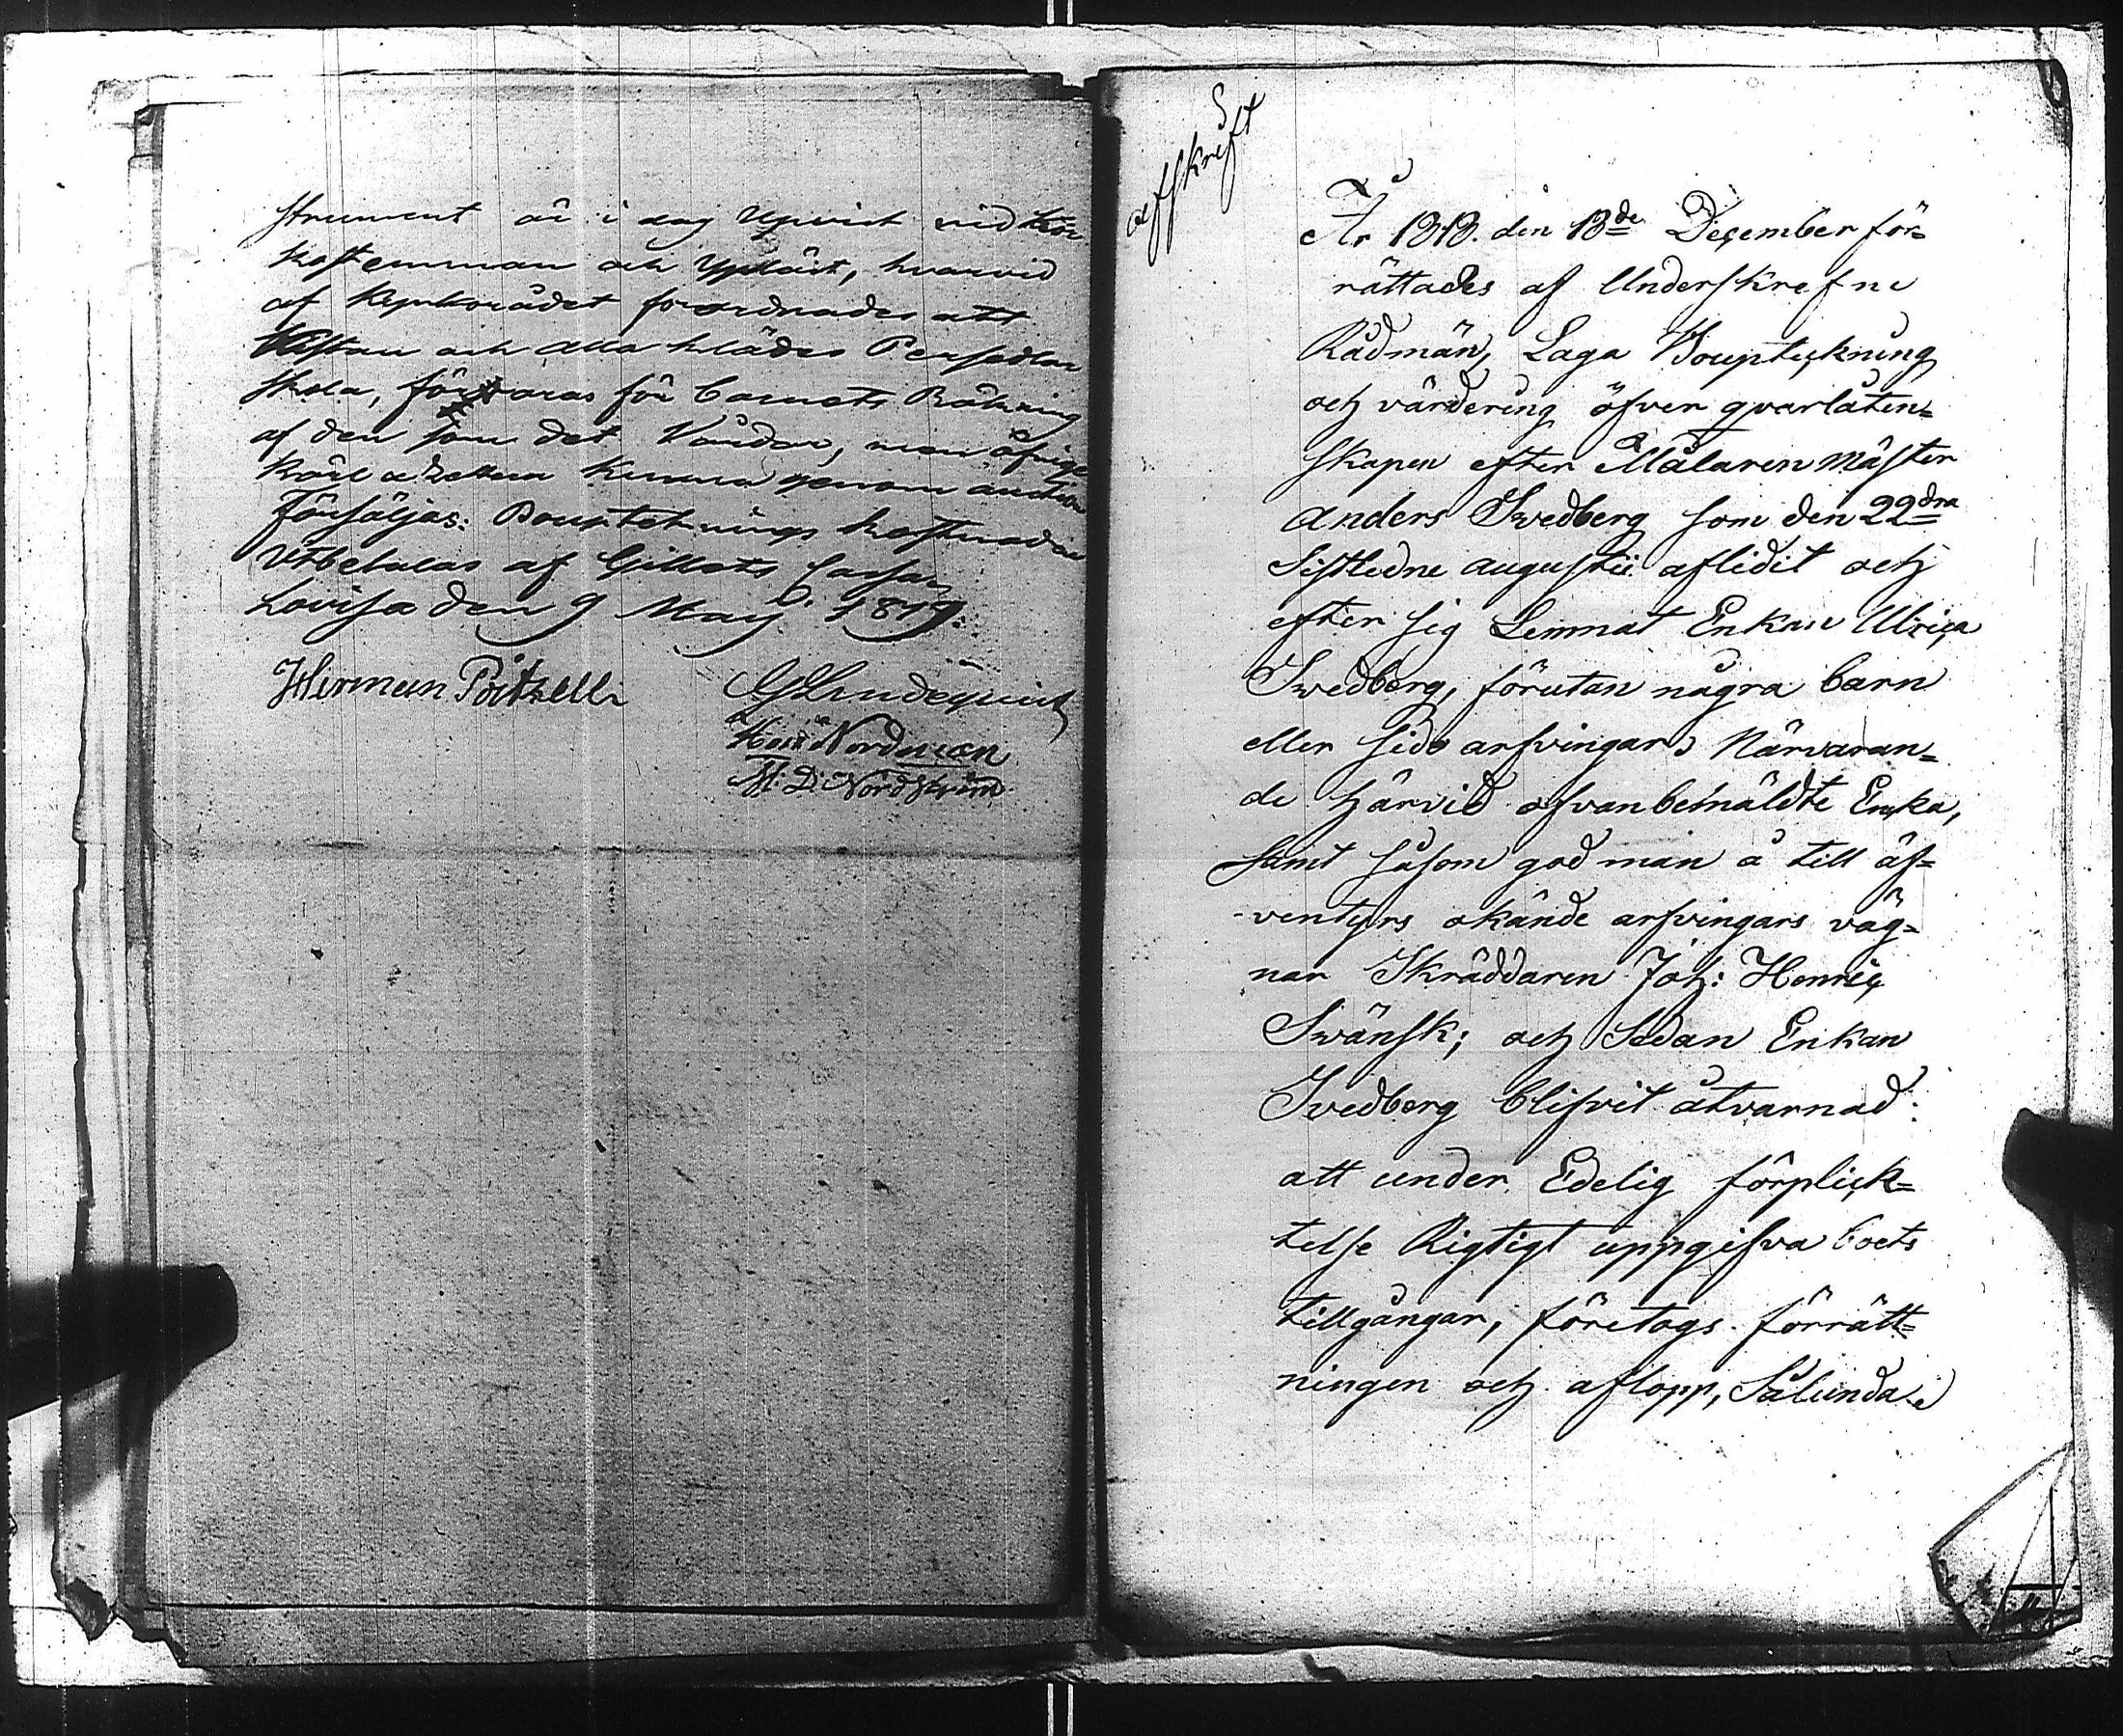 strument är i dag Upvist vid
kostemman och Upläst, hvarvid
af Kyrkorådet förordnades att
Kistan och alla klädes Persedlar
skola, förwaras för Barnets Räkning
af den som det Vårdar, men öfrige
kunna genom auction
Försäljas: Boupteknings kostnaden
Utbetalas af Cassa
Lovisa den 9 May 1819:
Herman
Nordman
M: D: Nordström
afskrift
År 1818. den 18de December för=
rättades af Underskrefne
Rådmän, Laga Bouptekning
och värdering öfver qvarlåten=
skapen efter Målaren Mäster
Anders Swedberg som den 22dra
Sistledne augustii aflidit och
efter sig Lemnat Enkan Ulrica
Swedberg, förutan några barn
eller sido arfvingar. Närvaran=
de härvid ofvanbemäldte Enka,
samt såsom god man å till äf=
ventyrs okände arfvingars väg=
nar Skräddaren Joh: Henric
Swänsk; och Sedan Enkan
Svedberg blifvit åtvarnad
att under Edelig förplick=
telse Rigtigt uppgifva boets
tillgångar, företogs förrätt=
ningen och aflopp, Sålunda